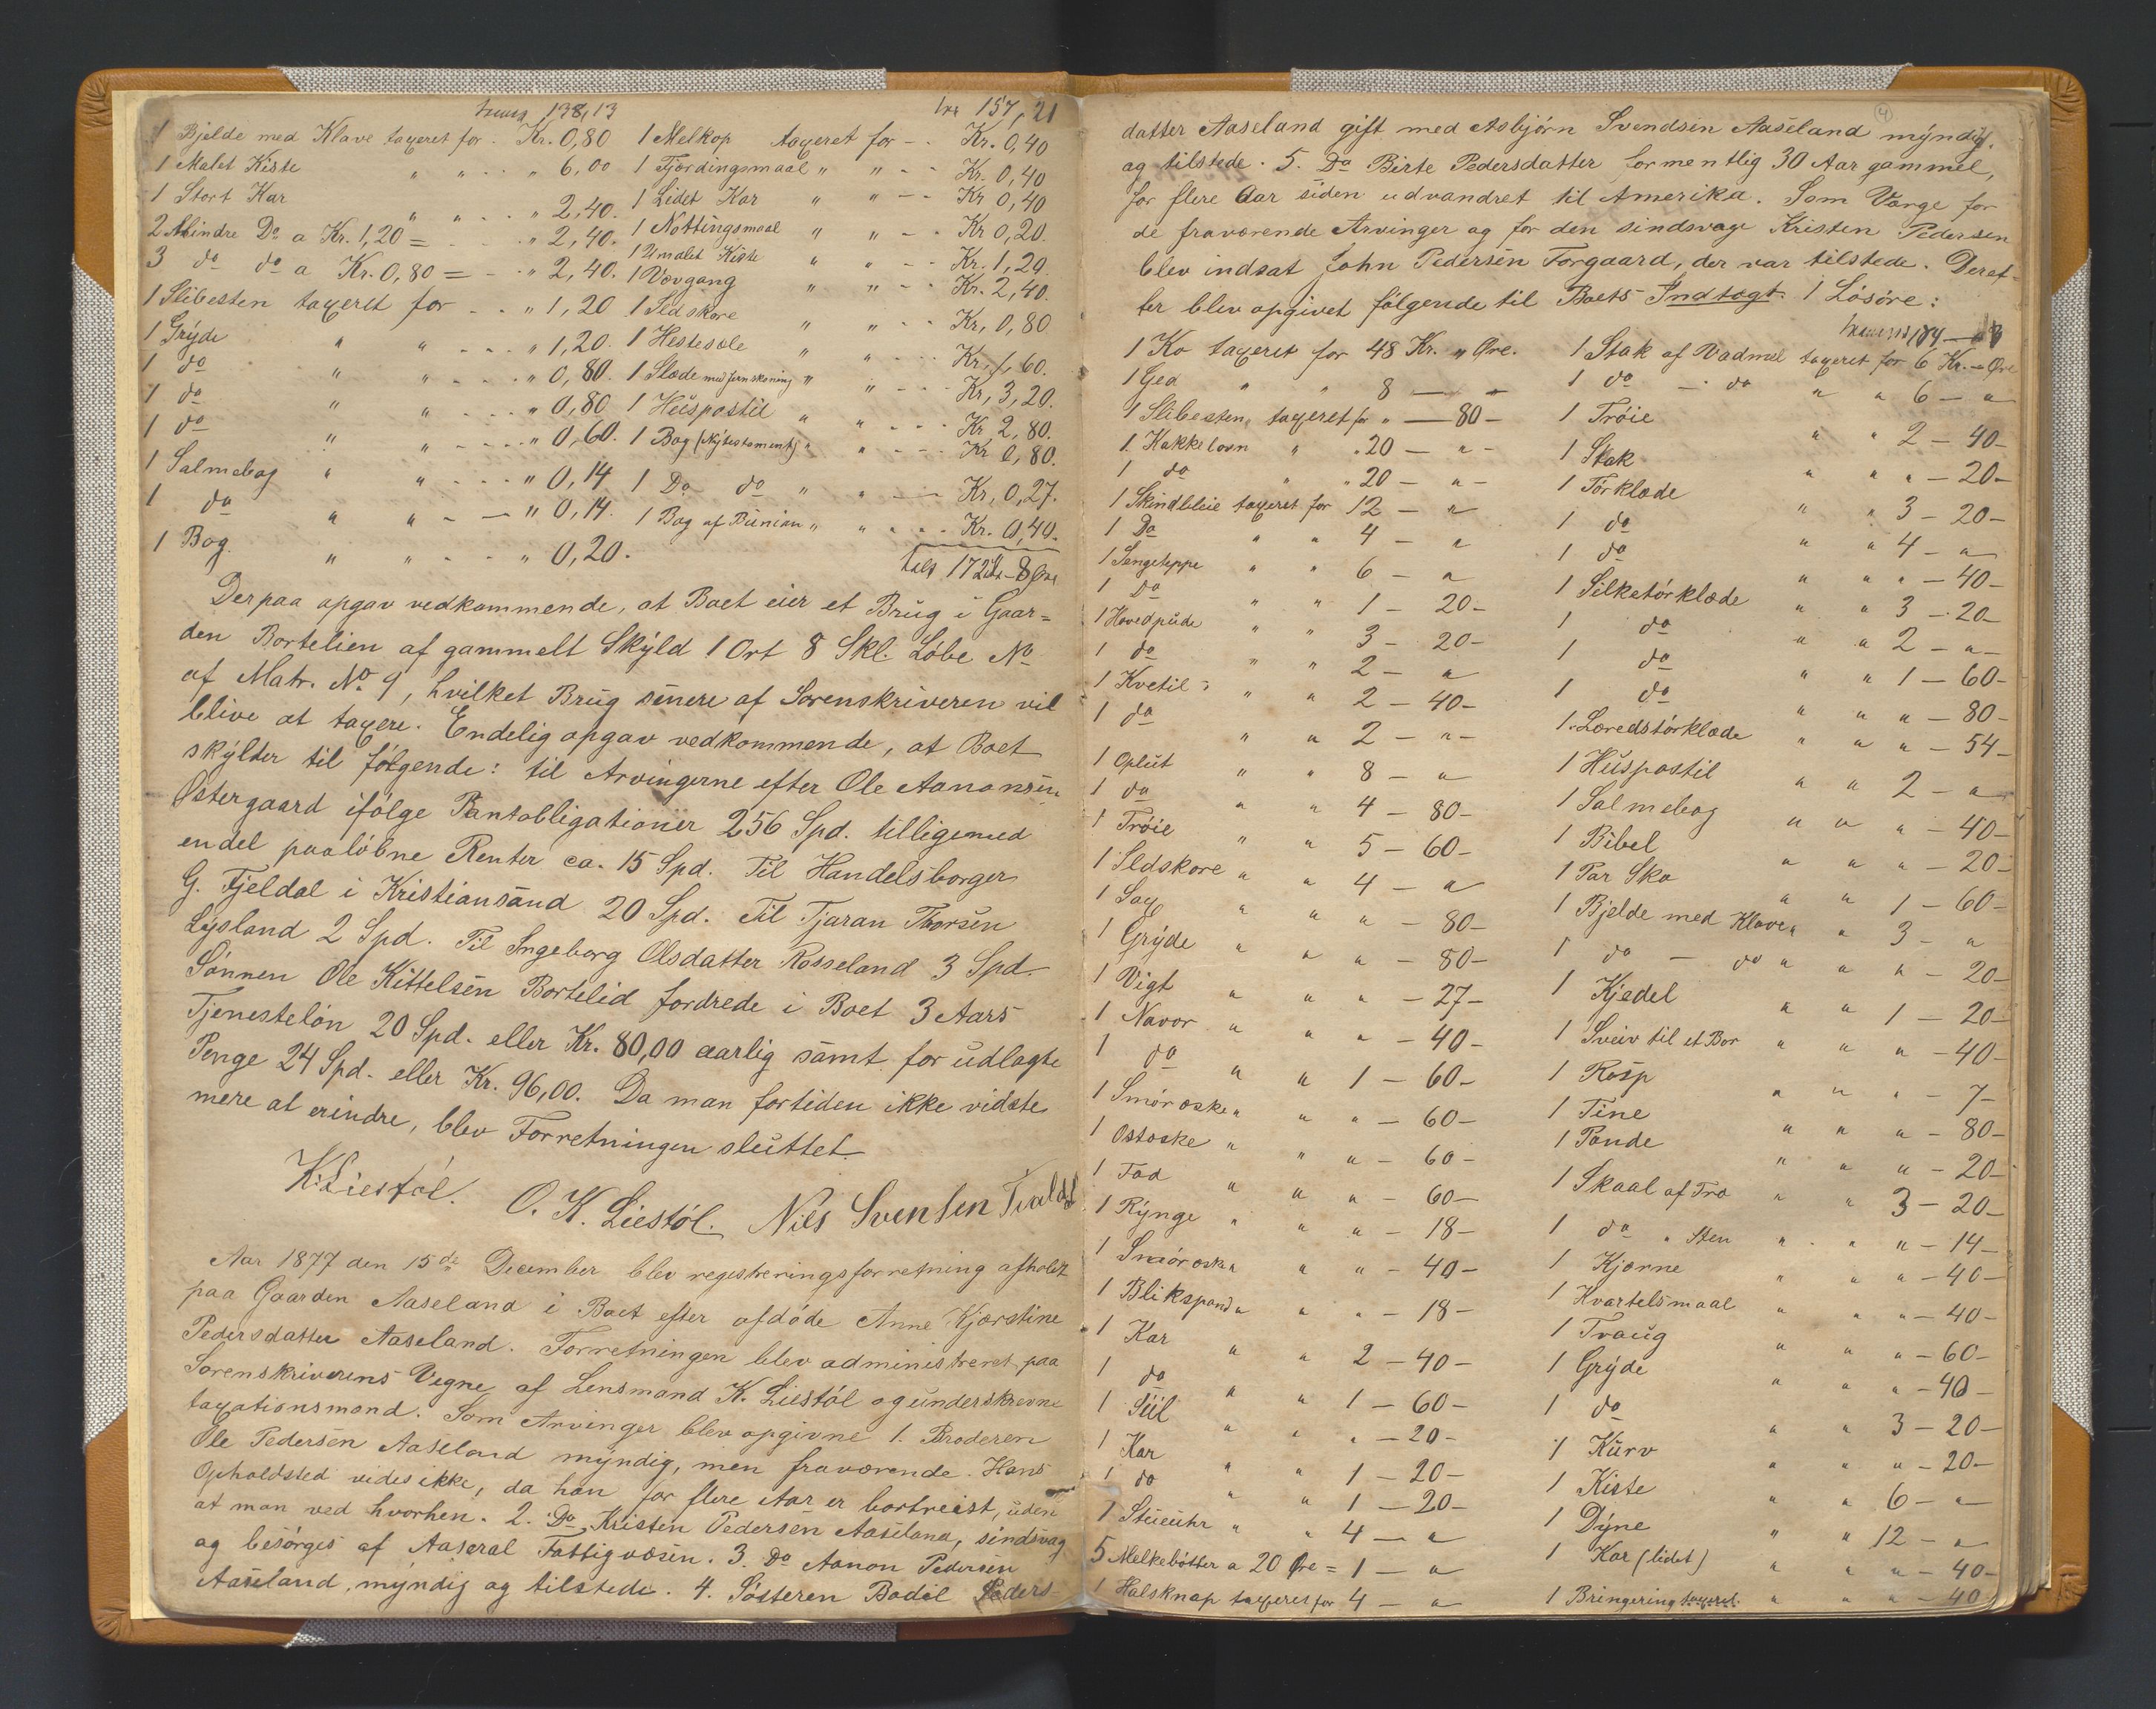 138,13
1 Bjelde med Klave taxeret for . Kr. 0,80
1 Malet Kiste " " . . " 6,00
1 Stort Kar " " . . " 2,40.
2 Mindre Do a Kr. 1,20 = . . . " 2,40.
3 do do a Kr. 0,80 = - . . " 2,40.
1 Slibesten taxeret for . . " 1,20
1 Grÿde " " - . . " 1,20.
1 do " " . . . " 0,80.
1 do " " . . . " 0,80
1 do " " - . . . " 0,60.
1 Salmebog " " . . . " 0,14
1 do " " - — " 0,14.
1 Bog " " . . . " 0,20.
157,21
1 Melkop taxeret for - . Kr. 0,40
1 Fjordingsmaal " " - - Kr. 0,40
1 Lidet Kar " " - - Kr 0,40
1 Nottingsmaal " " - - Kr 0,20.
1 Umalet Kiste " " - - Kr. 1,20
1 Vovgang " " - - Kr. 2,40.
1 Sldskore " " - - Kr, 0,80
1 Hestesole " " . . . Kr, 1,60.
1 Slæde med Jernskoning " " . . . Kr, 3,20.
1 Hüspostil " " . . . Kr 2,80.
1 Bog (Nÿtestament) " " - - - Kr 0,80.
1 Do do " " - — Kr, 0,27.
1 Bog af Bünian " " . . . Kr. 0,40.
172 Kr - 8 Øre
Derpaa opgav vedkommende, at Boet eier et Brüg i Gaar=
den Bortelien af gammelt Skÿld 1 Ort 8 Skl. Löbe No
af Matr. No 9, hvilket Brüg senere af Sorenskriveren vil
blive at taxere. Endelig opgav vedkommende, at Boet
skÿlder til følgende: til Arvingerne efter Ole Aanonsen
Østergaard ifölge Pantobligationer 256 Spd. tilligemed
endel paaløbne Renter ca. 15 Spd. Til Handelsborger
G. Fjeldal i Kristiansand 20 Spd. Til Tjaran Thorsen
Lÿsland 2 Spd. Til Ingeborg Olsdatter Rosseland 3 Spd.
Sönnen Ole Kittelsen Bortelid fordrede i Boet 3 Aars
Tjenestelön 20 Spd. eller Kr. 80,00 aarlig samt for udlagte
Penge 24 Spd. eller Kr. 96,00. Da man fortiden ikke vidste
mere at erindre, blev Forretningen slüttet.
K. Liestøl. O. K. Liestöl. Nils Svensen
Aar 1877 den 15de December blev registreringsforretning afholdt
paa Gaarden Aaseland i Boet efter afdöde Anne Kjerstine
Pedersdatter Aaseland. Forretningen blev administreret paa
Sorenskriverens Vegne af Lensmand K. Liestöl og ünderskrevne
taxationsmænd. Som Arvinger blev opgivne 1. Broderen
Ole Pedersen Aaseland mÿndig, men fraværende. Hans
Opholdsted vides ikke, da han for flere Aar er bortreist, üden
at man ved hvorhen. 2. Do Kristen Pedersen Aaseland, sindsvag
og besörges af Aaseral Fattigvæsen. 3. Do Aanon Pedersen
Aaseland, mÿndig og tilstede. 4. Sösteren Bodil Peders-
4
datter Aaseland gift med Asbjörn Svendsen Aaseland mÿndig,
og tilstede. 5. Do Birte Pedersdatter formentlig 30 Aar gammel,
for flere Aar siden udvandret til Amerika. Som Værge for
de fraværende Arvinger og for den sindsvage Kristen Pedersen
blev indsat John Pedersen Torgaard, der var tilstede. Deref-
ter blev opgivet fölgende til Boets Indtægt. 1 Lösöre:
1 Ko taxeret for 48 Kr. " Øre.
1 Ged " " 8 — "
1 Slibesten, taxeret for " — 80 -
1 Kakkelovn " " 20 — " -
1 do " " 20 — " -
1 Skindbleie taxeret for 12 — "
1 Do " " 4 — "
1 Sengeteppe " " 6 — "
1 do " " 1 - 20 -
1 Hovedpüde " " 3 - 20 -
1 do " " 2 - "
1 Kvetil " " 2 - 40 -
1 do " " 2 - " -
1 Oplüt " " 8 - "
1 do " " 4 - 80 -
1 Tröie " " 5 - 60 -
1 Sldskore " " 4 - "
1 Sag " " " - 80 -
1 Grÿde " " " - 80 -
1 Vigt " " " - 27 -
1 Navor " " " - 40 -
1 do " " 1 - 60 -
1 Smöroske " " " - 60 -
1 Ostoske " " " - 60 -
1 Fad " " " - 60 -
1 Rÿnge " " " - 18 -
1 Smöroske " " " - 40 -
1 Blikspand " " " - 18 -
1 Kar " " 2 - 40 -
1 do " " 1 - 60 -
1 Siil " " " - 20 -
1 Kar " " 1 - 20 -
1 do " " 1 - 20 -
1 Stüeühr " " 4 - "
5 Melkebötter a 20 Øre = 1 - "
1 Halsknap taxeret for 4 - "
1 Stak af Vadmel taxeret for 6 Kr. - Øre
1 do - do " " 6 - "
1 Tröie " " 2 - 40 -
1 Stak " " " - 20 -
1 Törklæde " " 3 - 20 -
1 do " " 4 - "
1 do " " " - 40 -
1 Silketörklæde " " 3 - 20 -
1 do " " 2 - " -
1 do " " 1 - 60 -
1 do " " " - 80 -
1 Lærredstörklæde " " " - 54 -
1 Hüspostil " " 2 - "
1 Salmebog " " " - 40 -
1 Bibel " " " - 20 -
1 Par Sko " " 1 - 60 -
1 Bjelde med Klave " " 3 - "
1 do - do " " " - 20 -
1 Kjedel " " 1 - 20 -
1 Sveiv til et Bor " " " - 40 -
1 Rosp " " " - 7 -
1 Tine " " " - 80 -
1 Pande " " " - 20 -
1 Skaal af Træ " " 3 - 20 -
1 do " Sten " " " - 14 -
1 Kjærne " " " - 40 -
1 Kvartelsmaal " " " - 40 -
1 Traüg " " " - 60 -
1 Grÿde " " " - 40 -
1 do " " 3 - 20 -
1 Kürv " " " - 20 -
1 Kiste " " 6 - "
1 Dÿne " " 12 - "
1 Kar (lidet) " " " - 40 -
1 Bringering taxeret " " " - 40